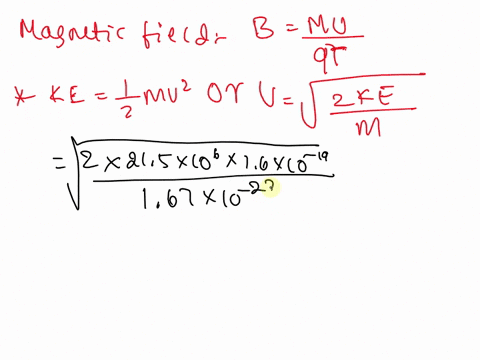 Magnetic field:- B = MU/qr
* KE = 1/2 MU² or U = √(2KE/M)
= √(2 × 21.5 × 10⁶ × 1.6 × 10⁻¹⁹ / 1.67 × 10⁻²⁷)